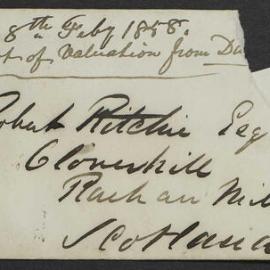 8th Feby 1858.
of Valuation from
Robert Ritchie Esq
Cloverhill
Rachan Mill
Scotland